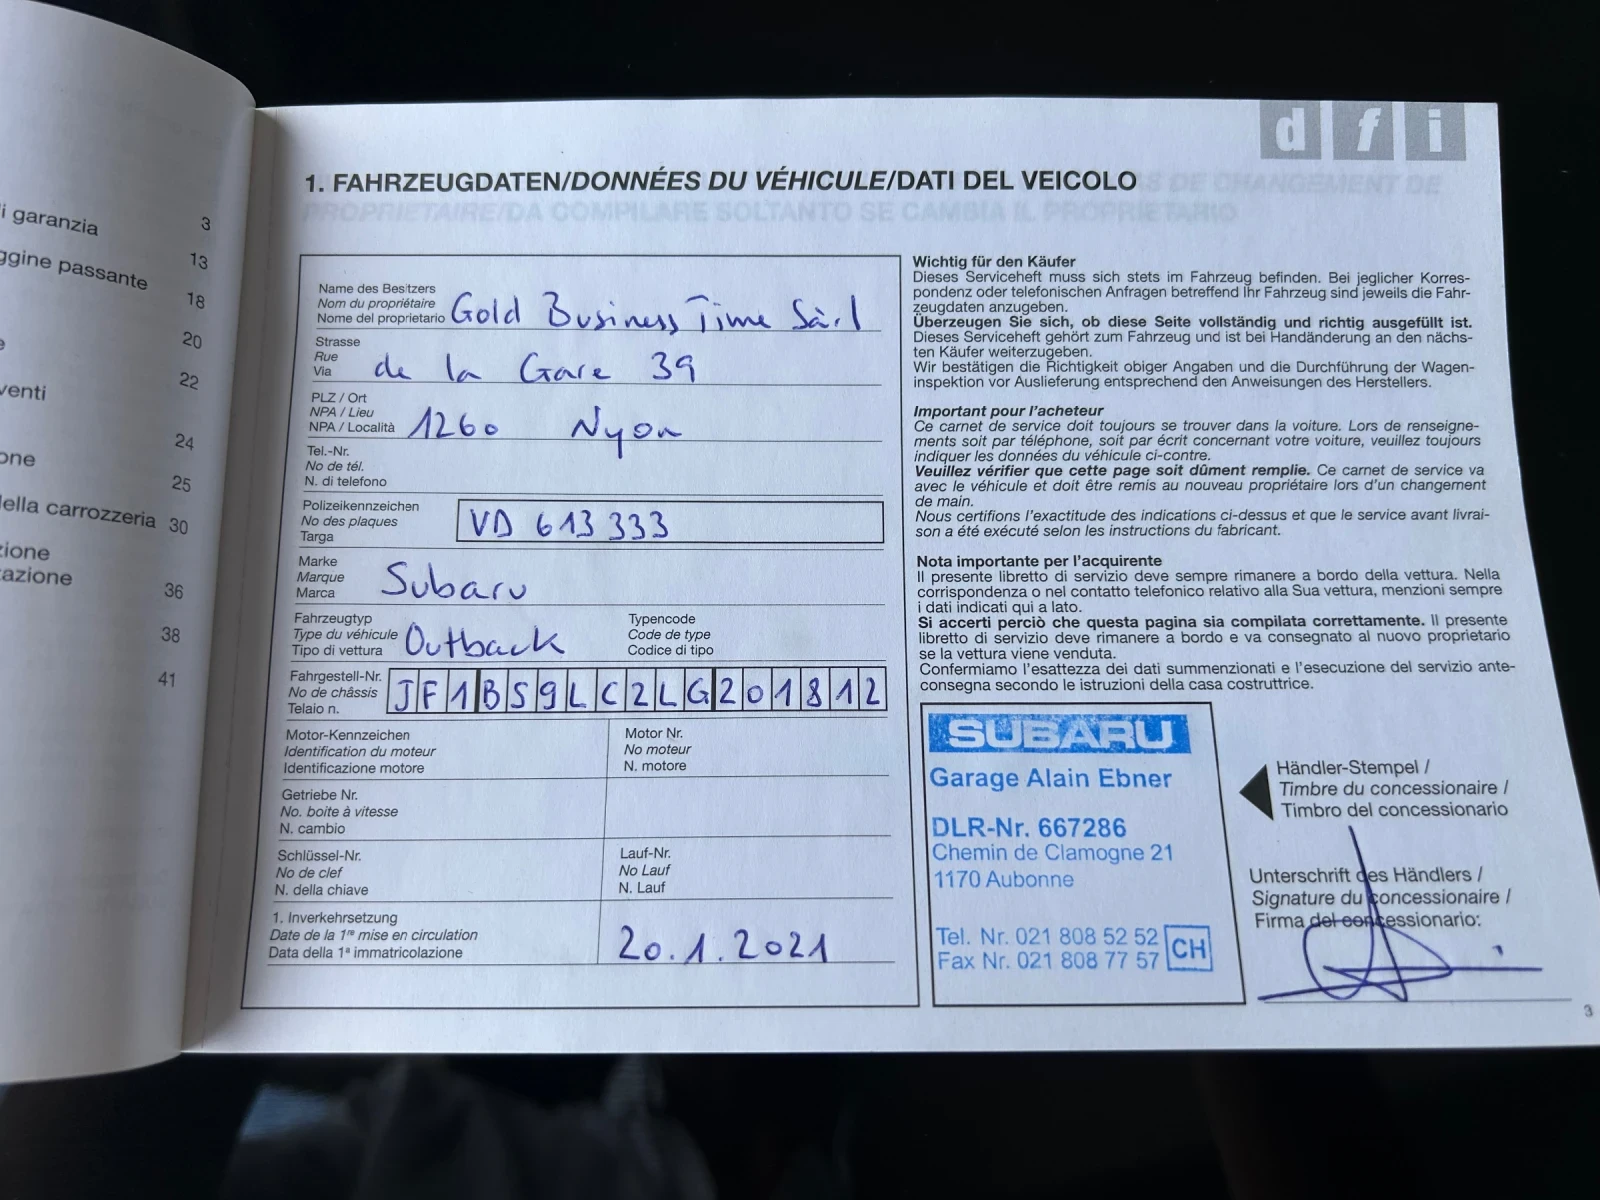 i garanzia 3
ggine passante 13
18
20
venti 22
24
one 25
ella carrozzeria 30
zione
tazione 36
38
41
d f i
1. FAHRZEUGDATEN/DONNÉES DU VÉHICULE/DATI DEL VEICOLO
S DE CHANGEMENT DE
PROPRIETAIRE/DA COMPILARE SOLTANTO SE CAMBIA IL PROPRIETARIO
Name des Besitzers
Nom du propriétaire
Nome del proprietario Gold Business Time Sàrl
Strasse
Rue
Via de la Gare 39
PLZ / Ort
NPA / Lieu
NPA / Località 1260 Nyon
Tel.-Nr.
No de tél.
N. di telefono
Polizeikennzeichen
No des plaques
Targa VD 613 333
Marke
Marque
Marca Subaru
Fahrzeugtyp
Type du véhicule
Tipo di vettura Outback
Typencode
Code de type
Codice di tipo
Fahrgestell-Nr.
No de châssis
Telaio n. JF1BS9LC2LG201812
Motor-Kennzeichen
Identification du moteur
Identificazione motore
Motor Nr.
No moteur
N. motore
Getriebe Nr.
No. boite à vitesse
N. cambio
Schlüssel-Nr.
No de clef
N. della chiave
Lauf-Nr.
No Lauf
N. Lauf
1. Inverkehrsetzung
Date de la 1re mise en circulation
Data della 1a immatricolazione
20.1.2021
Wichtig für den Käufer
Dieses Serviceheft muss sich stets im Fahrzeug befinden. Bei jeglicher Korres-
pondenz oder telefonischen Anfragen betreffend Ihr Fahrzeug sind jeweils die Fahr-
zeugdaten anzugeben.
Überzeugen Sie sich, ob diese Seite vollständig und richtig ausgefüllt ist.
Dieses Serviceheft gehört zum Fahrzeug und ist bei Handänderung an den nächs-
ten Käufer weiterzugeben.
Wir bestätigen die Richtigkeit obiger Angaben und die Durchführung der Wagen-
inspektion vor Auslieferung entsprechend den Anweisungen des Herstellers.
Important pour l'acheteur
Ce carnet de service doit toujours se trouver dans la voiture. Lors de renseigne-
ments soit par téléphone, soit par écrit concernant votre voiture, veuillez toujours
indiquer les données du véhicule ci-contre.
Veuillez vérifier que cette page soit dûment remplie. Ce carnet de service va
avec le véhicule et doit être remis au nouveau propriétaire lors d'un changement
de main.
Nous certifions l'exactitude des indications ci-dessus et que le service avant livrai-
son a été exécuté selon les instructions du fabricant.
Nota importante per l'acquirente
Il presente libretto di servizio deve sempre rimanere a bordo della vettura. Nella
corrispondenza o nel contatto telefonico relativo alla Sua vettura, menzioni sempre
i dati indicati qui a lato.
Si accerti perciò che questa pagina sia compilata correttamente. Il presente
libretto di servizio deve rimanere a bordo e va consegnato al nuovo proprietario
se la vettura viene venduta.
Confermiamo l'esattezza dei dati summenzionati e l'esecuzione del servizio ante-
consegna secondo le istruzioni della casa costruttrice.
SUBARU
Garage Alain Ebner
DLR-Nr. 667286
Chemin de Clamogne 21
1170 Aubonne
Tel. Nr. 021 808 52 52
Fax Nr. 021 808 77 57
CH
Händler-Stempel /
Timbre du concessionaire /
Timbro del concessionario
Unterschrift des Händlers /
Signature du concessionaire /
Firma del concessionario:
3